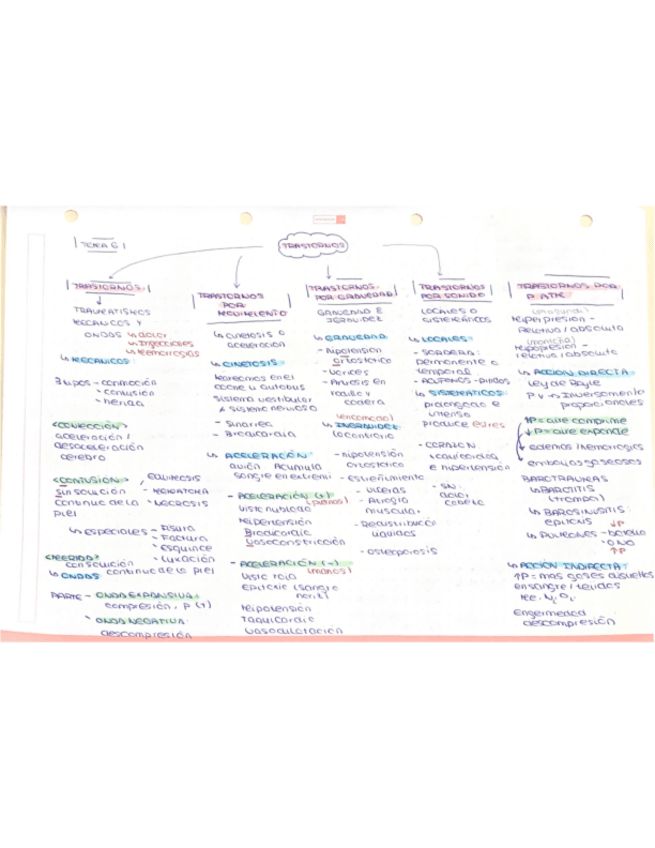 TEMA 6
TRASTORNOS
TRASTORNOS
TRAUMATISMOS
MECANICOS Y
ONDAS ↳ dolor
↳ Infecciones
↳ Hemorragias
↳ MECANICOS:
3 tipos - conmoción
- contusión
- herida
aceleración /
desaceleración
cerebro
<CONTUSIÓN>, EQUIMOSIS
Sin solución - HEMATOMA
continua de la - NECROSIS
piel
↳ especiales - Fisura
- Factura
- Esguince
- Luxación
<HERIDA>
con solución
continue de la piel
↳ ONDAS
PARTE - ONDA EXPANSIVA:
compresión, P (↑)
- ONDA NEGATIVA:
descompresión
TRASTORNOS
POR
MOVIMIENTO
↳ cinetosis o
aceleración
↳ CINETOSIS:
mareemos en el
coche u autobus
Sistema vestibular
& sistema nervioso
- Sinarrea
- Bradicardia
↳ ACELERACIÓN:
avión Acumula
sangre en extremi
- ACELERACIÓN (+)
(piernas)
Viste nublada
Hipertensión
Bradicardia
Vasoconstricción
- ACELERACIÓN (-)
(manos)
Viste roja
Epitaxis (sangre
nariz)
Hipotensión
Taquicardia
Vasodilatación
TRASTORNOS
POR GRAVEDAD
GRAVEDAD E
INGRAVIDEZ
↳ GRAVEDAD:
- hipotensión
ortostatica
- Varices
- Artrosis en
rodilla y
cadera
(encamado)
↳ INGRAVIDEZ:
lo contrario
- hipotensión
ortostatica
- estreñimiento
- ulceras
- Atrofia
muscular
- Redistribucio
liquidos
- osteoporosis
TRASTORNOS
POR SONIDO
LOCALES O
SISTEMÁTICOS
↳ LOCALES:
- SORDERA:
permanente o
temporal
- ACUFENOS - pitidos
↳ SISTEMATICOS:
prolongado e
intenso
produce estres
- CORAZON:
taquicardia
e hipertensión
- SN:
dolor
cabeza
TRASTORNOS POR
P. ATM
Hiperpresion -
Relativa / absoluta
Hipopresion -
relativa / absoluta
↳ ACCION DIRECTA:
Ley de Boyle
P y V → Inversamente
proporcionales
↑P = aire comprime
↓P = aire expande
edemas / hemorragias
embolias gaseosas
BAROTRAUMAS
↳ BAROTITIS
(trompa)
↳ BAROSINUSITIS:
epitaxis ↓P
↳ PULMONES - botella
O NO
↑P
↳ ACCION INDIRECTA:
↑P = mas gases disueltos
en sangre / tejidos
Enfermedad
descompresión